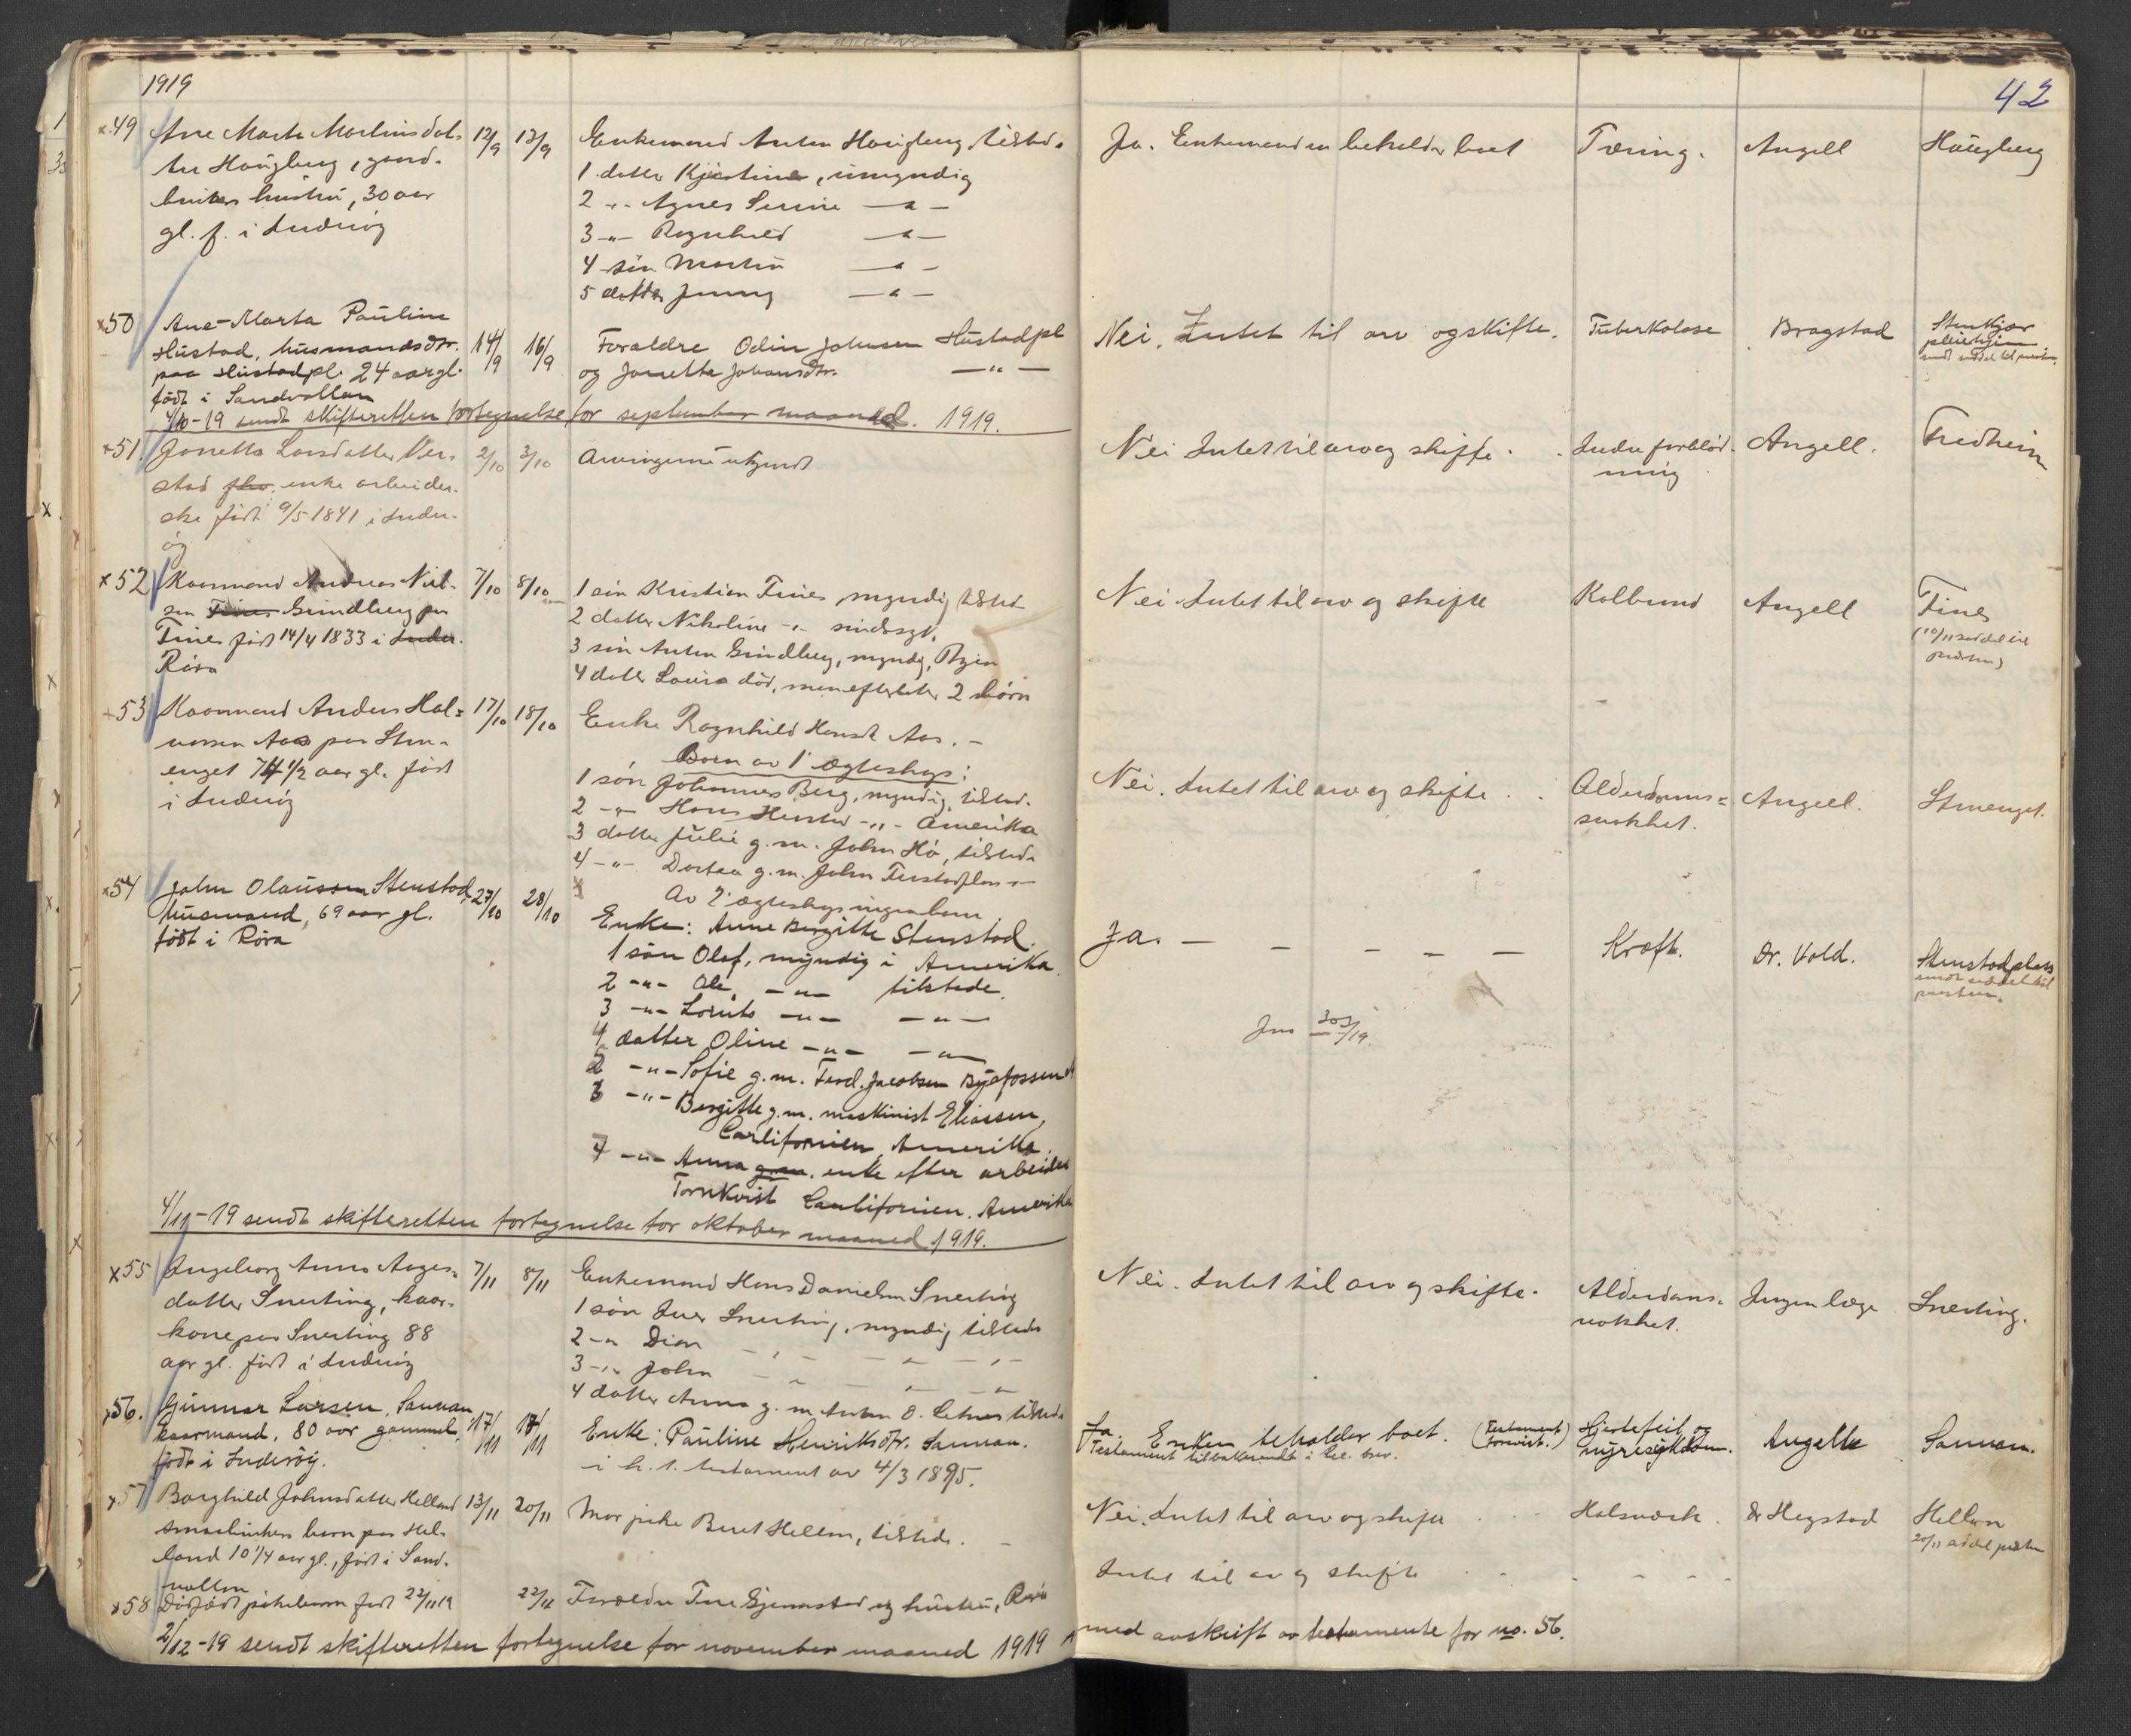 1919
42
x 49 Ane Marta Martinsdat-
ter Haugberg, gaard-
brukers hustru, 30 aar
gl. f. i Inderøy
12/9 13/9
Enkemand Anton Haugberg tilstede
1 datter Kjerstine, umyndig
2 -"- Agnes Serine -"-
3 -"- Ragnhild -"-
4 søn Martin -"-
5 datter Jenny -"-
Ja. Enkemanden beholder boet
Tæring.
Angell
Haugberg
x 50 Ane-Marta Pauline
Hustad, husmandsdtr.
paa Hustadpl. 24 aar gl.
født i Sandvollan
14/9 16/9
Forældre Odin Johnsen Hustadpl
og Jonetta Johansdtr. -"-
Nei. Intet til arv og skifte.
Tuberkolose
Bragstad
Stenkjær
pleiehjem
sendt seddel til presten.
4/10-19 sendt skifteretten fortegnelse for september maaned. 1919.
x 51. Jonetta Larsdatter Ver-
stad enke arbeider-
ske født 9/5 1841 i Inder-
øy
2/10 3/10
Arvingerne ukjendt
Nei Intet til arv og skifte.
Indre forblød-
ning
Angell.
Fredheim
x 52 Kaarmand Andreas Niel-
sen Tines Grindberg paa
Tines født 14/4 1833 i Inder.
Røra
7/10 8/10
1 søn Kristian Tines, myndig tilsted
2 datter Nikoline -"- sindssyk.
3 søn Anton Grindberg, myndig,
4 datter Lovisa død, men efterlater 2 børn
Nei Intet til arv og skifte
Kolbrand
Angell
Tines
(10/11 seddel til
presten)
x 53 Kaarmand Anders Hal-
vorsen Aas paa Sten-
enget 74 1/2 aar gl. født
i Inderøy
17/10 18/10
Enke Ragnhild Hansdt Aas. -
Børn av 1' ægteskap:
1 søn Johannes Berg, myndig, tilsted.
2 -"- Hans -"- Amerika
3 datter Julie g. m. John Hø, tilstede
4 -"- Dortea g. m. John
Av 2' ægteskap ingen børn
Nei. Intet til arv og skifte.
Alderdoms-
svakhet.
Angell.
Stenenget.
x 54 John Olaussen Stenstad
husmand, 69 aar gl.
født i Røra
27/10 28/10
Enke: Anne Bergitte Stenstad.
1 søn Olaf, myndig i Amerika.
2 -"- Ole -"- tilstede.
3 -"- Lorints -"- -"-
4 datter Oline -"- -"-
-"- Sofie g. m. Ferd. Jacobsen Byafossen
-"- Bergitte g. m. maskinist Eliassen,
Carlifornien, Amerika.
7 -"- Anna g.m. enke efter arbeider
Tornkvist Canlifornien. Amerika
Ja. - - - - -
Kræft.
Dr. Vold.
Stenstadplads
sendt seddel til
presten.
Jno 303/19
4/11-19 sendt skifteretten fortegnelse for oktober maaned 1919.
x 55 Ingeborg Anna Aages-
datter Snerting, kaar-
kone paa Snerting 88
aar gl. født i Inderøy
7/11 8/11
Enkemand Hans Danielsen Snerting
1 søn Iver Snerting, myndig tilstede
2 -"- Dion -"- -"- -"-
3 -"- John -"- -"- -"-
4 datter Anna g. m. Anton O. tilstede
Nei. Intet til arv og skifte.
Alderdoms-
svakhet.
Ingen læge
Snerting.
x 56. Gunnar Larsen, Sannan
kaarmand, 80 aar gammel,
født i Inderøy.
17/11 18/11
Enke: Pauline Henriksdtr. Sannan.
i h. t. testament av 4/3 1895.
Ja. Enken beholder boet. (Testament forevist.)
Testament tilbakesendt i brev.
Hjertefeil og
nyresykdom.
Angell
Sannan.
x 57 Borghild Johnsdatter Helland
smaabrukers barn paa Hel-
land 10 1/4 aar gl., født i Sand-
vollan
13/11 20/11
Mor pike Beret Hellem, tilstede.
Nei. Intet til arv og skifte
Halsværk.
Dr Hegstad
Hellem
20/11 seddel presten
x 58 Dødfødt pikebarn født 22/11 19
22/11
Forældre Tore Gjermstad og hustru, Røra
Intet til arv og skifte
2/12-19 sendt skifteretten fortegnelse for november maaned 1919 med avskrift av testamente for no. 56.